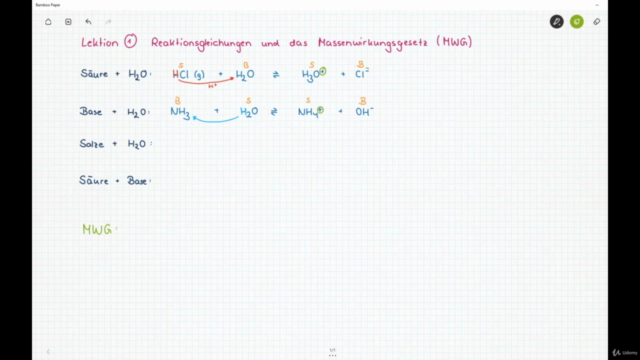 Bamboo Paper
Lektion 1 Reaktionsgleichungen und das Massenwirkungsgesetz (MWG)
S B S B
Säure + H₂O: HCl (g) + H₂O ⇌ H₃O⊕ + Cl⁻
H⁺
B S S B
Base + H₂O: NH₃ + H₂O ⇌ NH₄⊕ + OH⁻
Salze + H₂O:
Säure + Base:
MWG:
1/1
Udemy